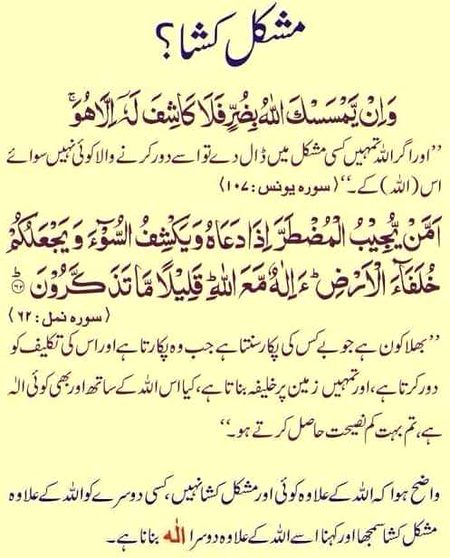 مشکل کشا؟
وَاِنْ يَّمْسَسْكَ اللّٰهُ بِضُرٍّ فَلَا كَاشِفَ لَهٗٓ اِلَّا هُوَ ۚ
’’اور اگر اللہ تمہیں کسی مشکل میں ڈال دے تو اسے دور کرنے والا کوئی نہیں سوائے
اس (اللہ) کے۔‘‘ (سورہ یونس: ۱۰۷)
اَمَّنْ يُّجِيْبُ الْمُضْطَرَّ اِذَا دَعَاهُ وَيَكْشِفُ السُّوْٓءَ وَيَجْعَلُكُمْ
خُلَفَآءَ الْاَرْضِ ؕ ءَاِلٰهٌ مَّعَ اللّٰهِ ؕ قَلِيْلًا مَّا تَذَكَّرُوْنَ ؕ﴿۶۲﴾
(سورہ نمل: ۶۲)
’’بھلا کون ہے جو بے کس کی پکار سنتا ہے جب وہ پکارتا ہے اور اس کی تکلیف کو
دور کرتا ہے، اور تمہیں زمین پر خلیفہ بناتا ہے، کیا اس اللہ کے ساتھ اور بھی کوئی الٰہ
ہے، تم بہت کم نصیحت حاصل کرتے ہو۔‘‘
واضح ہوا کہ اللہ کے علاوہ کوئی اور مشکل کشا نہیں، کسی دوسرے کو اللہ کے علاوہ
مشکل کشا سمجھا اور کہنا اسے اللہ کے علاوہ دوسرا الٰه بنانا ہے۔